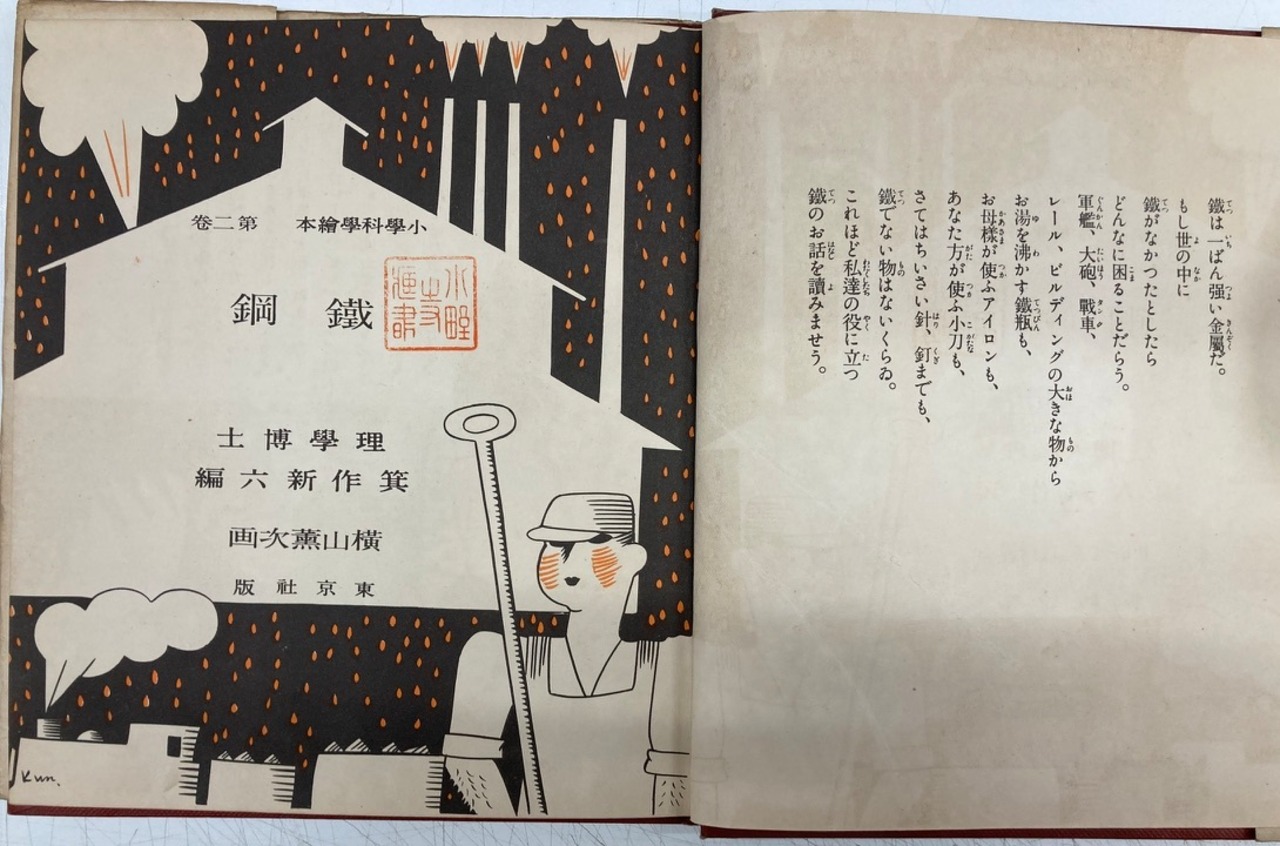 小學科學繪本　第二卷
鐵鋼
理學博士
箕作新六編
橫山薰次画
東京社版
Kun.
鐵は一ばん强い金屬だ。
もし世の中に
鐵がなかつたとしたら
どんなに困ることだらう。
軍艦、大砲、戰車、
レール、ビルディングの大きな物から
お湯を沸かす鐵瓶も、
お母樣が使ふアイロンも、
あなた方が使ふ小刀も、
さてはちいさい針、釘までも、
鐵でない物はないくらゐ。
これほど私達の役に立つ
鐵のお話を讀みませう。